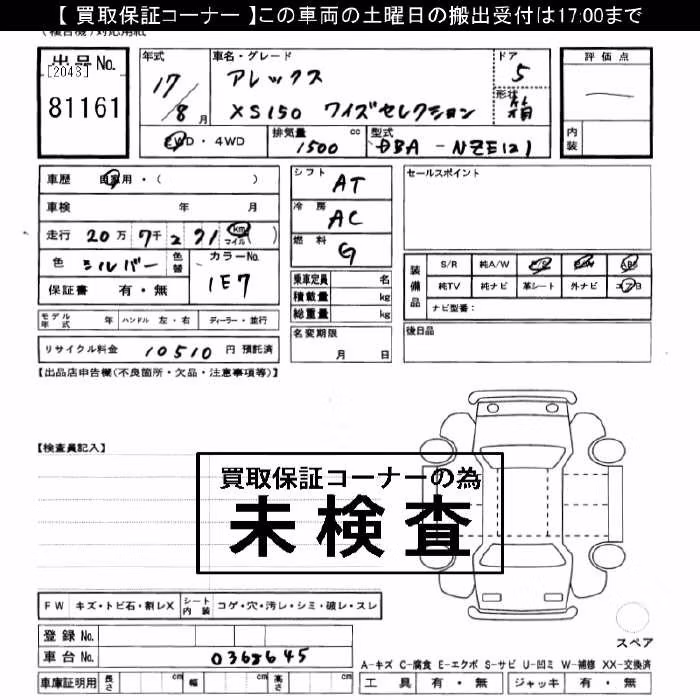 【 買取保証コーナー 】この車両の土曜日の搬出受付は17:00まで
出品No.
[2043]
81161
年式
17
8月
車名・グレード
アレックス
XS150 ワイズセレクション
ドア
5
形状
箱
評価点
内装
FWD・4WD
排気量
1500 cc
型式
DBA - NZE121
車歴 自家用・( )
車検 年 月
走行 20万7千271 (km マイル)
色 シルバー 色替
カラーNo.
1E7
保証書 有・無
モデル年式 年 ハンドル 左・右 ディーラー・並行
リサイクル料金 10510 円 預託済
シフト
AT
冷房
AC
燃料
G
乗車定員 名
積載量 kg
総重量 kg
名変期限
月 日
セールスポイント
装備品
S/R 純A/W P/S P/W ABS
純TV 純ナビ 革シート 外ナビ エアB
ナビ型番:
後日品
【出品店申告欄(不良箇所・欠品・注意事項等)】
【検査員記入】
買取保証コーナーの為
未検査
FW キズ・トビ石・割レX シート内装 コゲ・穴・汚レ・シミ・破レ・スレ
登録No.
車台No. 0368645
車庫証明用 長さ cm 幅 cm 高さ cm
スペア
A-キズ C-腐食 E-エクボ S-サビ U-凹ミ W-補修 XX-交換済
工具 有・無 ジャッキ 有・無